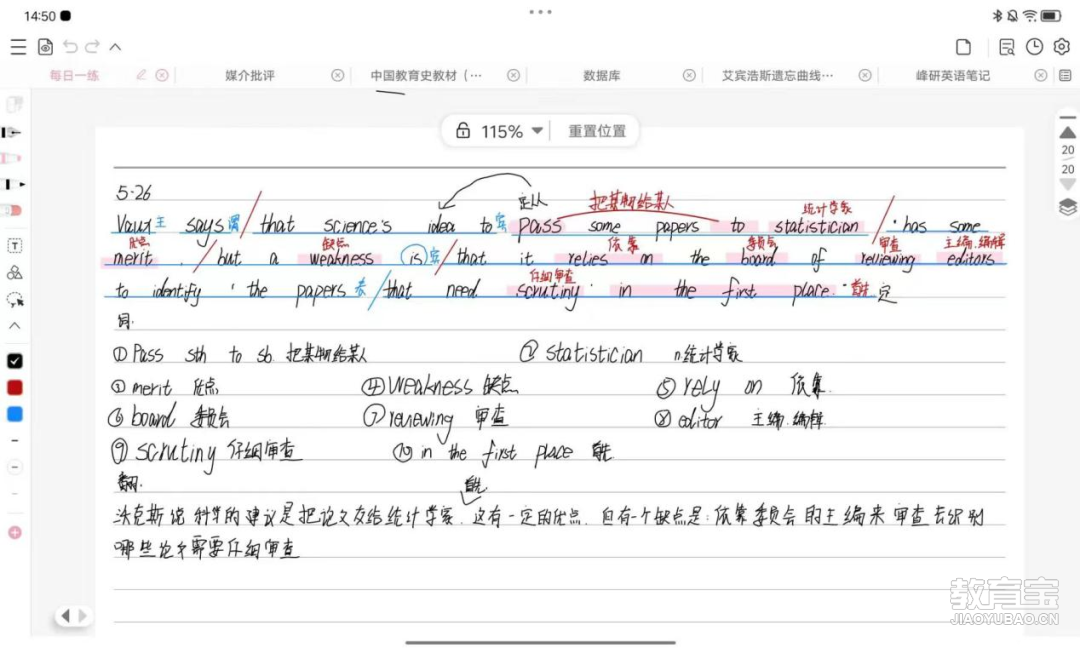 14:50
每日一练 媒介批评 中国教育史教材（… 数据库 艾宾浩斯遗忘曲线… 峰研英语笔记
115% 重置位置
20
20
5.26
定从 把某物给某人 统计学家
Vaux 主 says 谓 / that science's idea to 实 pass some papers to statistician / has some
优点 缺点 依靠 委员会 审查 主编.编辑
merit. / but a weakness is / that it relies on the board of reviewing editors
仔细审查
to identify the papers / that need scrutiny in the first place. 首先 定
词:
① Pass sth to sb 把某物给某人 ② statistician n统计学家
③ merit 优点 ④ Weakness 缺点 ⑤ rely on 依靠.
⑥ board 委员会 ⑦ reviewing 审查 ⑧ editor 主编.编辑
⑨ scrutiny 仔细审查 ⑩ in the first place 首先
翻: 首先
沃克斯说 科学的建议是把论文交给统计学家. 这有一定的优点. 但有一个缺点是: 依靠委员会的主编来审查去识别
哪些论文需要仔细审查
教育宝
JIAOYUBAO.CN